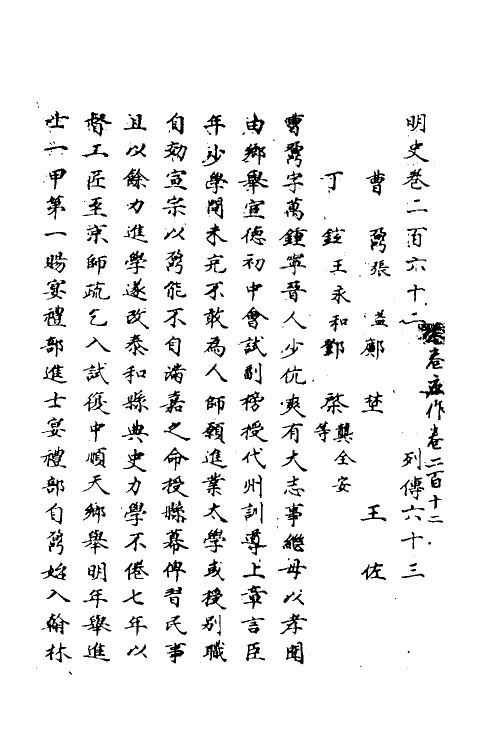 明史卷二百六十二 列傳六十三
卷應作卷二百十二
曹鼐張益鄺埜王佐
丁鉉王永和鄧棨等龔全安
曹鼐字萬鍾寧晉人少伉爽有大志事繼母以孝聞
由鄉舉宣德初中會試副榜授代州訓導上章言臣
年少學問未充不敢為人師願進業太學或授別職
自効宣宗以鼐能不自滿嘉之命授縣幕俾習民事
且以餘力進學遂改泰和縣典史力學不倦七年以
督工匠至京師疏乞入試復中順天鄉舉明年舉進
士一甲第一賜宴禮部進士宴禮部自鼐始入翰林